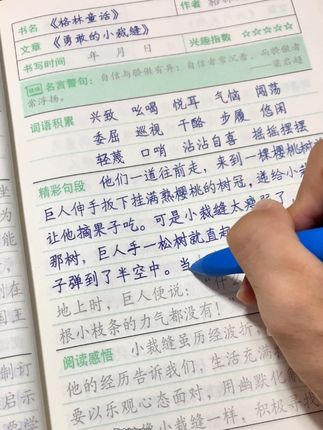 书名 《格林童话》 作者 格林
文章 《勇敢的小裁缝》
书写时间 年 月 日 兴趣指数 ☆☆☆☆☆
名言警句：自信与骄傲有异：自信者常沉着，而骄傲者
常浮扬。 ——梁启超
词语积累 兴致 吆喝 悦耳 气恼 闯荡
委屈 巡视 干酪 步履 悠闲
轻蔑 口哨 沾沾自喜 摇摇摆摆
精彩句段 他们一道往前走，来到一棵樱桃树
巨人伸手扳下挂满熟樱桃的树冠，递给小裁
让他摘果子吃。可是小裁缝太瘦弱了，
那树，巨人手一松树就直起
子弹到了半空中。当
地上时，巨人便说：
根小枝条的力气都没有！
阅读感悟 小裁缝虽历经波折，
他的经历告诉我们，生活充满
要以乐观心态面对，用幽默化解
裁缝一样，积极寻找